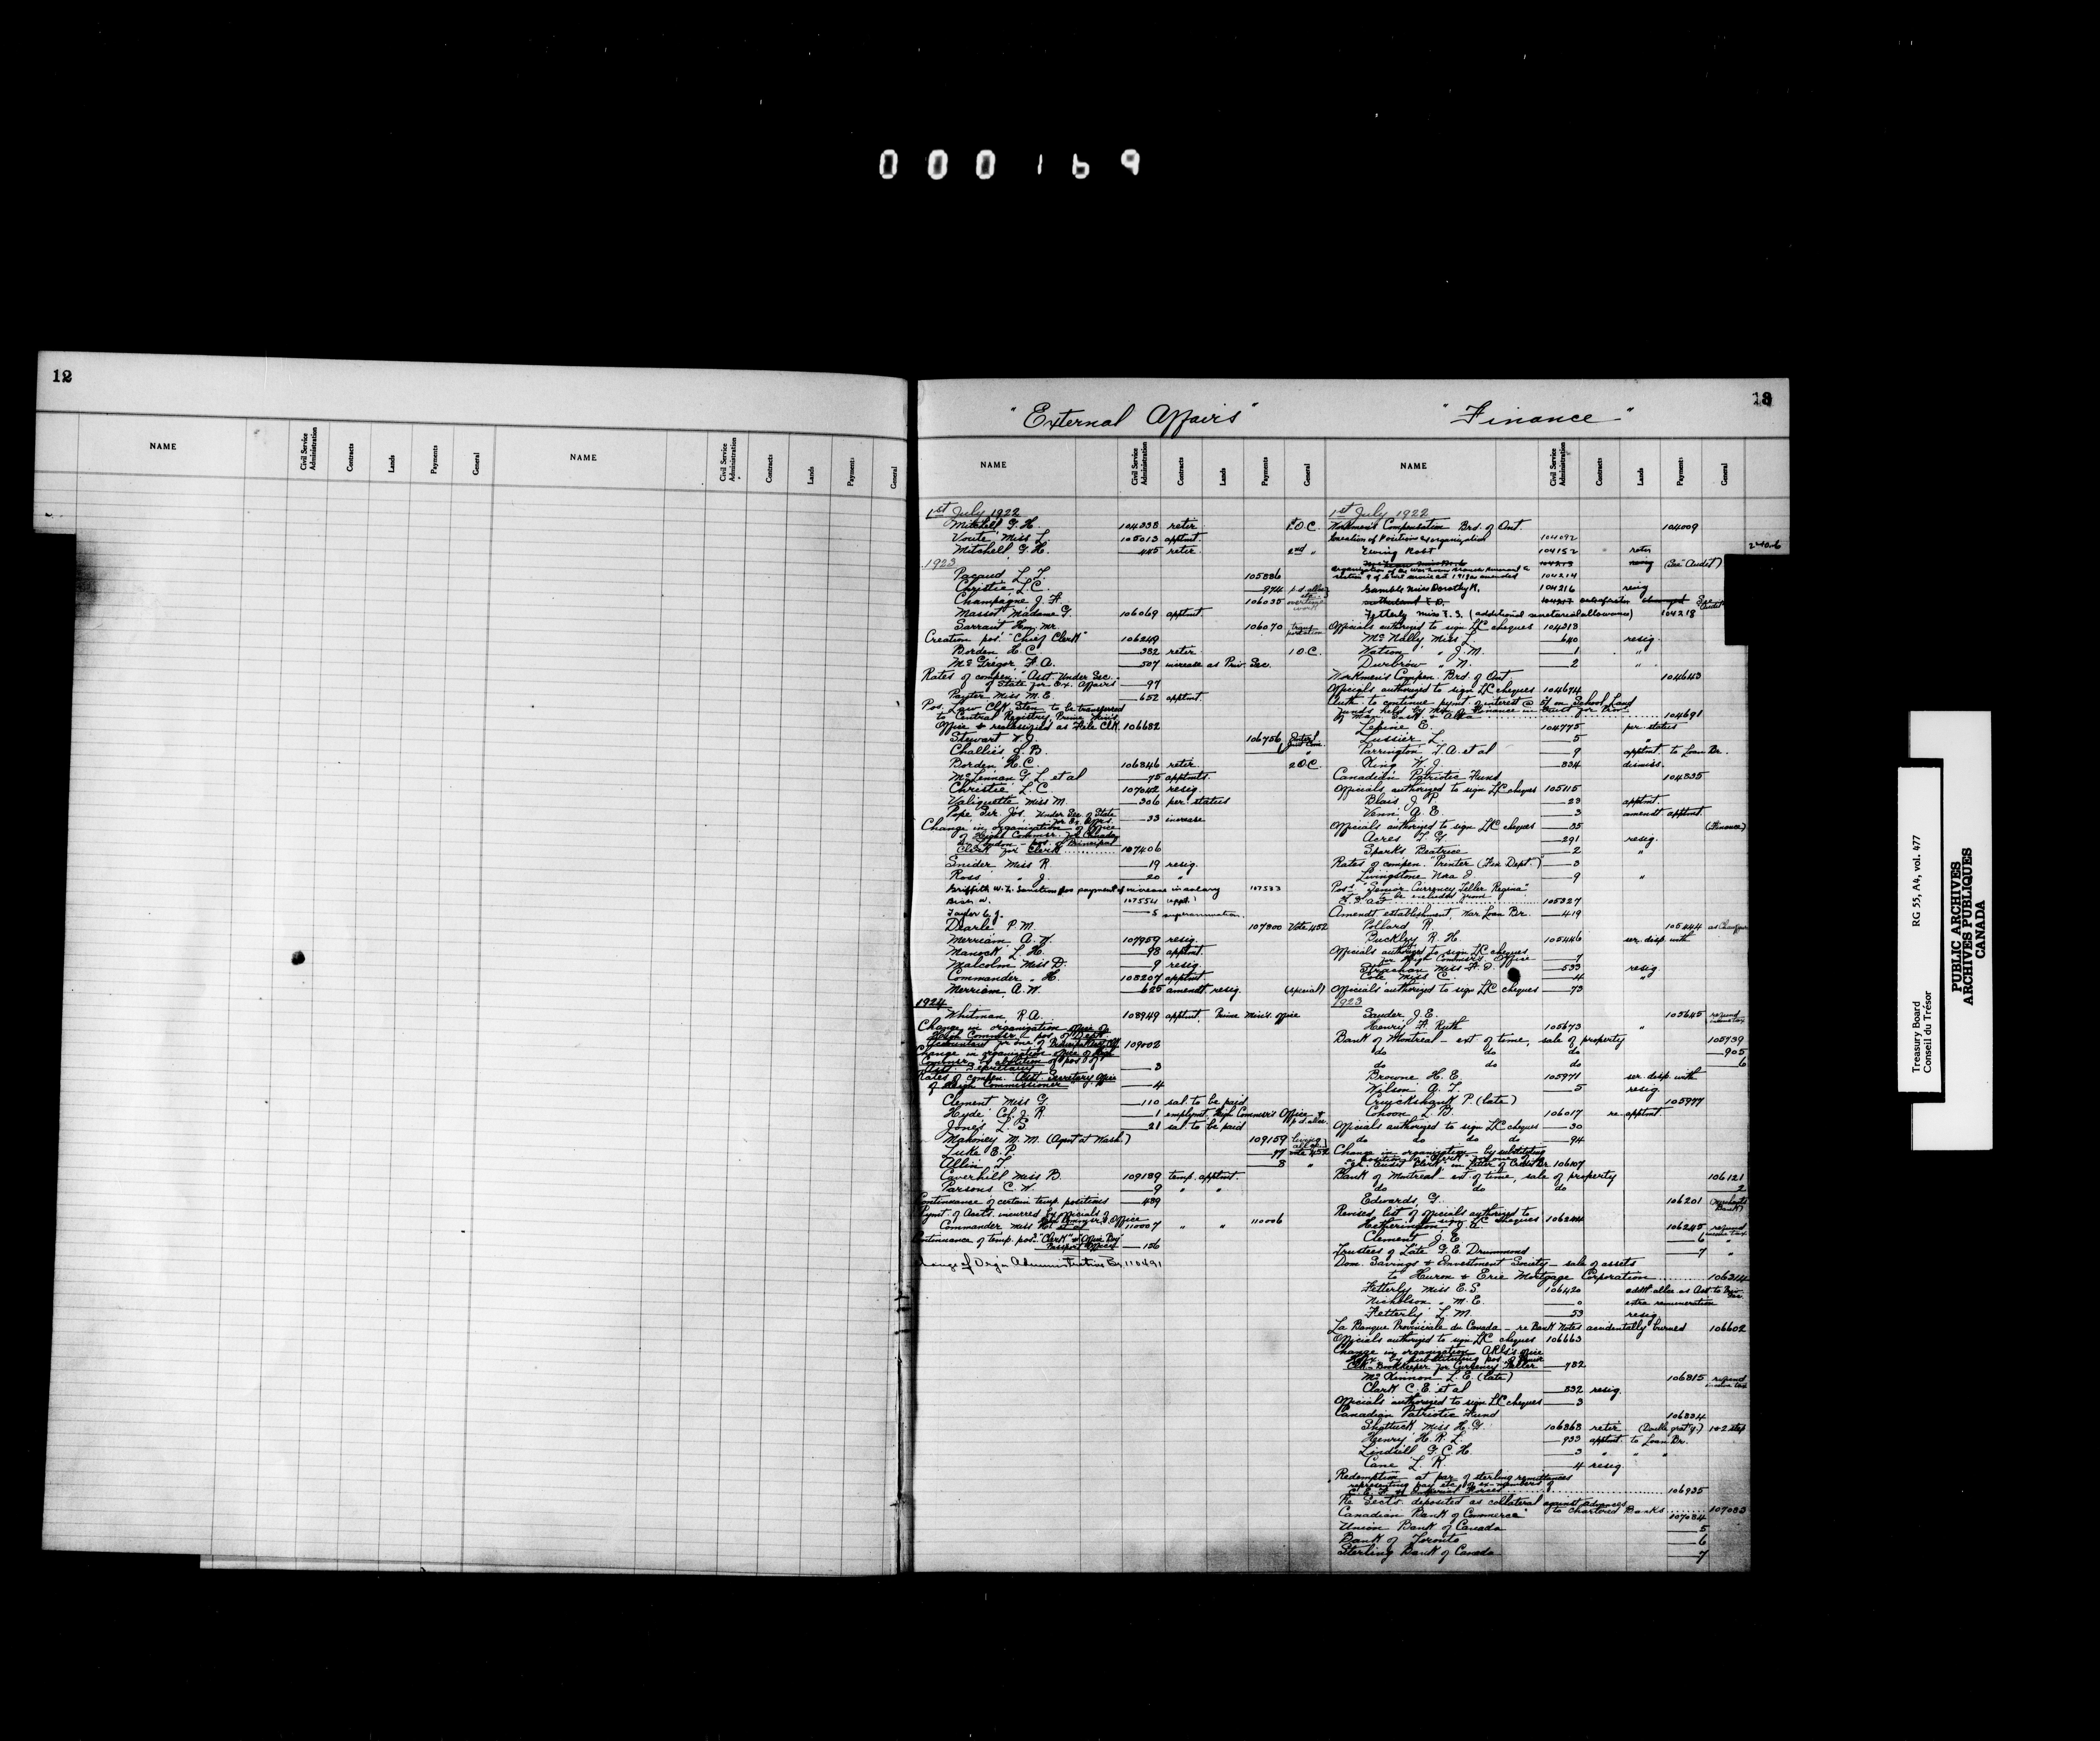 000169
12
NAME Civil Service Administration Contracts Lands Payments General NAME Civil Service Administration Contracts Lands Payments General
13
"External Affairs"
NAME Civil Service Administration Contracts Lands Payments General
1st July 1922
Mitchell G. H. 104338 retir 1 O.C.
Voute Miss L. 105013 apptmt
Mitchell G. H. 445 retir 2nd "
1923
Pacaud L. T. 105886
Christie L. C. 974
Champagne J. H. 106035
Massot Madame G. 106069 apptmt
Sarraut Hon. Mr. 106070 transportation
Creation pos. "Chief Clerk" 106249
Borden H. C. 382 retir 1 O.C.
McGregor F. A. 507 increase as Priv. Sec.
Rates of compen. "Asst. Under Sec.
of State for Ex. Affairs 97
Payter Miss M. E. 652 apptmt
Pos. Law Clk Sten. to be transferred
to Central Registry Prime Mins.
Office & reclassified as File Clk. 106682
Stewart W. J. 106756
Challies J. B. "
Borden H. C. 106846 retir 2 O.C.
McLennan G. L. et al 75 apptmts.
Christie L. C. 107042 resig.
Valiquette Miss M. 306 per. status
Pope Sir Jos. Under Sec. of State
for Ex. Affrs. 33 increase
Change in organization of Office
of High Commssr. for Canada
in London - pos. of Principal
Clerk for Clerk 107406
Snider Miss R. 19 resig.
Ross " J. 20 "
Griffith W. L. Sanction for payment of increase in salary 107533
W. 107554 appt.
Taylor C. J. 5 superannuation
Dearle P. M. 107800 Vote 452
Merriam A. W. 107959 resig.
Manock L. H. 98 apptmt.
Malcolm Miss D. 9 resig.
Commander " H. 108207 apptmt.
Merriam A. W. 625 amendt. resig. (special)
1924
Whitman R. A. 108949 apptmt. Prime Min's. Office
Change in organization office of
High Commssr.
Accountant for one of 109002
Change in organization office of High
Commssr. by abolition of pos. of
3
Rates of compen. Asst. Secretary Office
of High Commissioner 4
Clement Miss G. 110 sal. to be paid
Hyde Col. J. R. 1 emplymt. High Commssr's Office &
Jones L. S. 21 sal. to be paid
Mahoney M. M. (Agent at Wash.) 109159 living
Luke E. P. 77 vote 452
Allin T. 8 "
Caverhill Miss B. 109189 temp. apptmt.
Parsons C. W. 9 " "
Continuance of certain temp. positions 489
Pymt. of Accts. incurred by officials of
High Commssr's. Office 110006
Commander Miss H. et al 110007 " "
Continuance of temp. pos. "Clerk" & Office Boy
Passport Office 156
Change of Orgn. Administration Br. 110491
"Finance"
NAME Civil Service Administration Contracts Lands Payments General
1st July 1922
Workmen's Compensation Brd. of Ont. 104009
Creation of Positions & organization 104092
Ewing Robt 104152 retir
104213 resig (See "Audit")
104214
Gamble Miss Dorothy K. 104216 resig
Fetterly Miss E. S. (additional secretarial allowance) 104218
Officials authorized to sign L/C cheques 104313
McNally Miss L. 640 resig.
Watson " J. M. 1 "
Durbrow " N. 2 "
Workmen's Compen. Brd. of Ont. 104643
Officials authorized to sign L/C cheques 104674
Auth. to continue pymt. of interest @ 5% on School Land
Funds held by Min. of Finance in trust for Prov.
of Man. Sask. & Alta. 104691
Lepine E. 104775 per. status
Lussier L. 5 "
Parrington T. A. et al 9 apptmt. to Loan Br.
King W. J. 834 dismiss.
Canadian Patriotic Fund 104835
Officials authorized to sign L/C cheques 105115
Blais J. P. 23 apptmt.
Venn G. E. 3 amendt apptmt.
Officials authorized to sign L/C cheques 35 (Finance)
Acres T. G. 291 resig.
Sparks Beatrice 2 "
Rates of compen. Printer (Fin. Dept.) 3
Livingstone Nora J. 9 "
Pos. "Senior Currency Teller Regina"
to be excluded from 105327
Amendt. establishment, War Loan Br. 419
Pollard R. 105444
Buckley R. H. 105446 ser. disp. with
Officials authorized to sign L/C cheques
for High Commssr's. Office 7
Strachan Miss F. J. 533 resig.
Cole Miss C. 4 "
Officials authorized to sign L/C cheques 73
1923
Sauder J. E. 105645 refund
Henry F. Ruth 105673 "
Bank of Montreal - ext. of time, sale of property 105739
do do do 905
do do do 6
Browne H. E. 105971 ser. disp. with
Wilson A. T. 5 resig.
Cruickshank P. (late) 105977
Cohoon L. B. 106017 re-apptmt
Officials authorized to sign L/C cheques 30
do do do do 94
Change in organization - by substituting
106107
Bank of Montreal - ext. of time, sale of property 106121
do do do 2
Edwards G. 106201
Revised list of officials authorized to
sign L/C cheques 106244
Hetherington J. A. 106245 refund
Clement J. E. 6 income tax
Trustees of Late G. E. Drummond 7 "
Dom. Savings & Investment Society - sale of assets
to Huron & Erie Mortgage Corporation 106314
Fetterly Miss E. S. 106420
Nicholson " M. E. extra remuneration
Fetterly L. M. 53 resig.
La Banque Provinciale du Canada - re Bank Notes accidentally burned 106602
Officials authorized to sign L/C cheques 106663
Change in organization office
by substituting pos. of
Clk-Bookkeeper for Currency Teller 782
McKinnon L. E. (late) 106815 refund
Clark C. E. et al 832 resig.
Officials authorized to sign L/C cheques 3
Canadian Patriotic Fund 106834
Shattuck Miss H. G. 106868 retir (Double grat'y.)
Henry H. R. L. 933 apptmt. to Loan Br.
Lindsell G. C. H. 3 " " "
Cane L. K. 4 resig.
Redemption at par of sterling remittances
representing pay etc. of ex-members of
106935
Re Sects. deposited as collateral against advances
to chartered Banks 107083
Canadian Bank of Commerce 107084
Union Bank of Canada 5
Bank of Toronto 6
Sterling Bank of Canada 7
Treasury Board RG 55, A4, vol. 477
Conseil du Trésor
PUBLIC ARCHIVES
ARCHIVES PUBLIQUES
CANADA